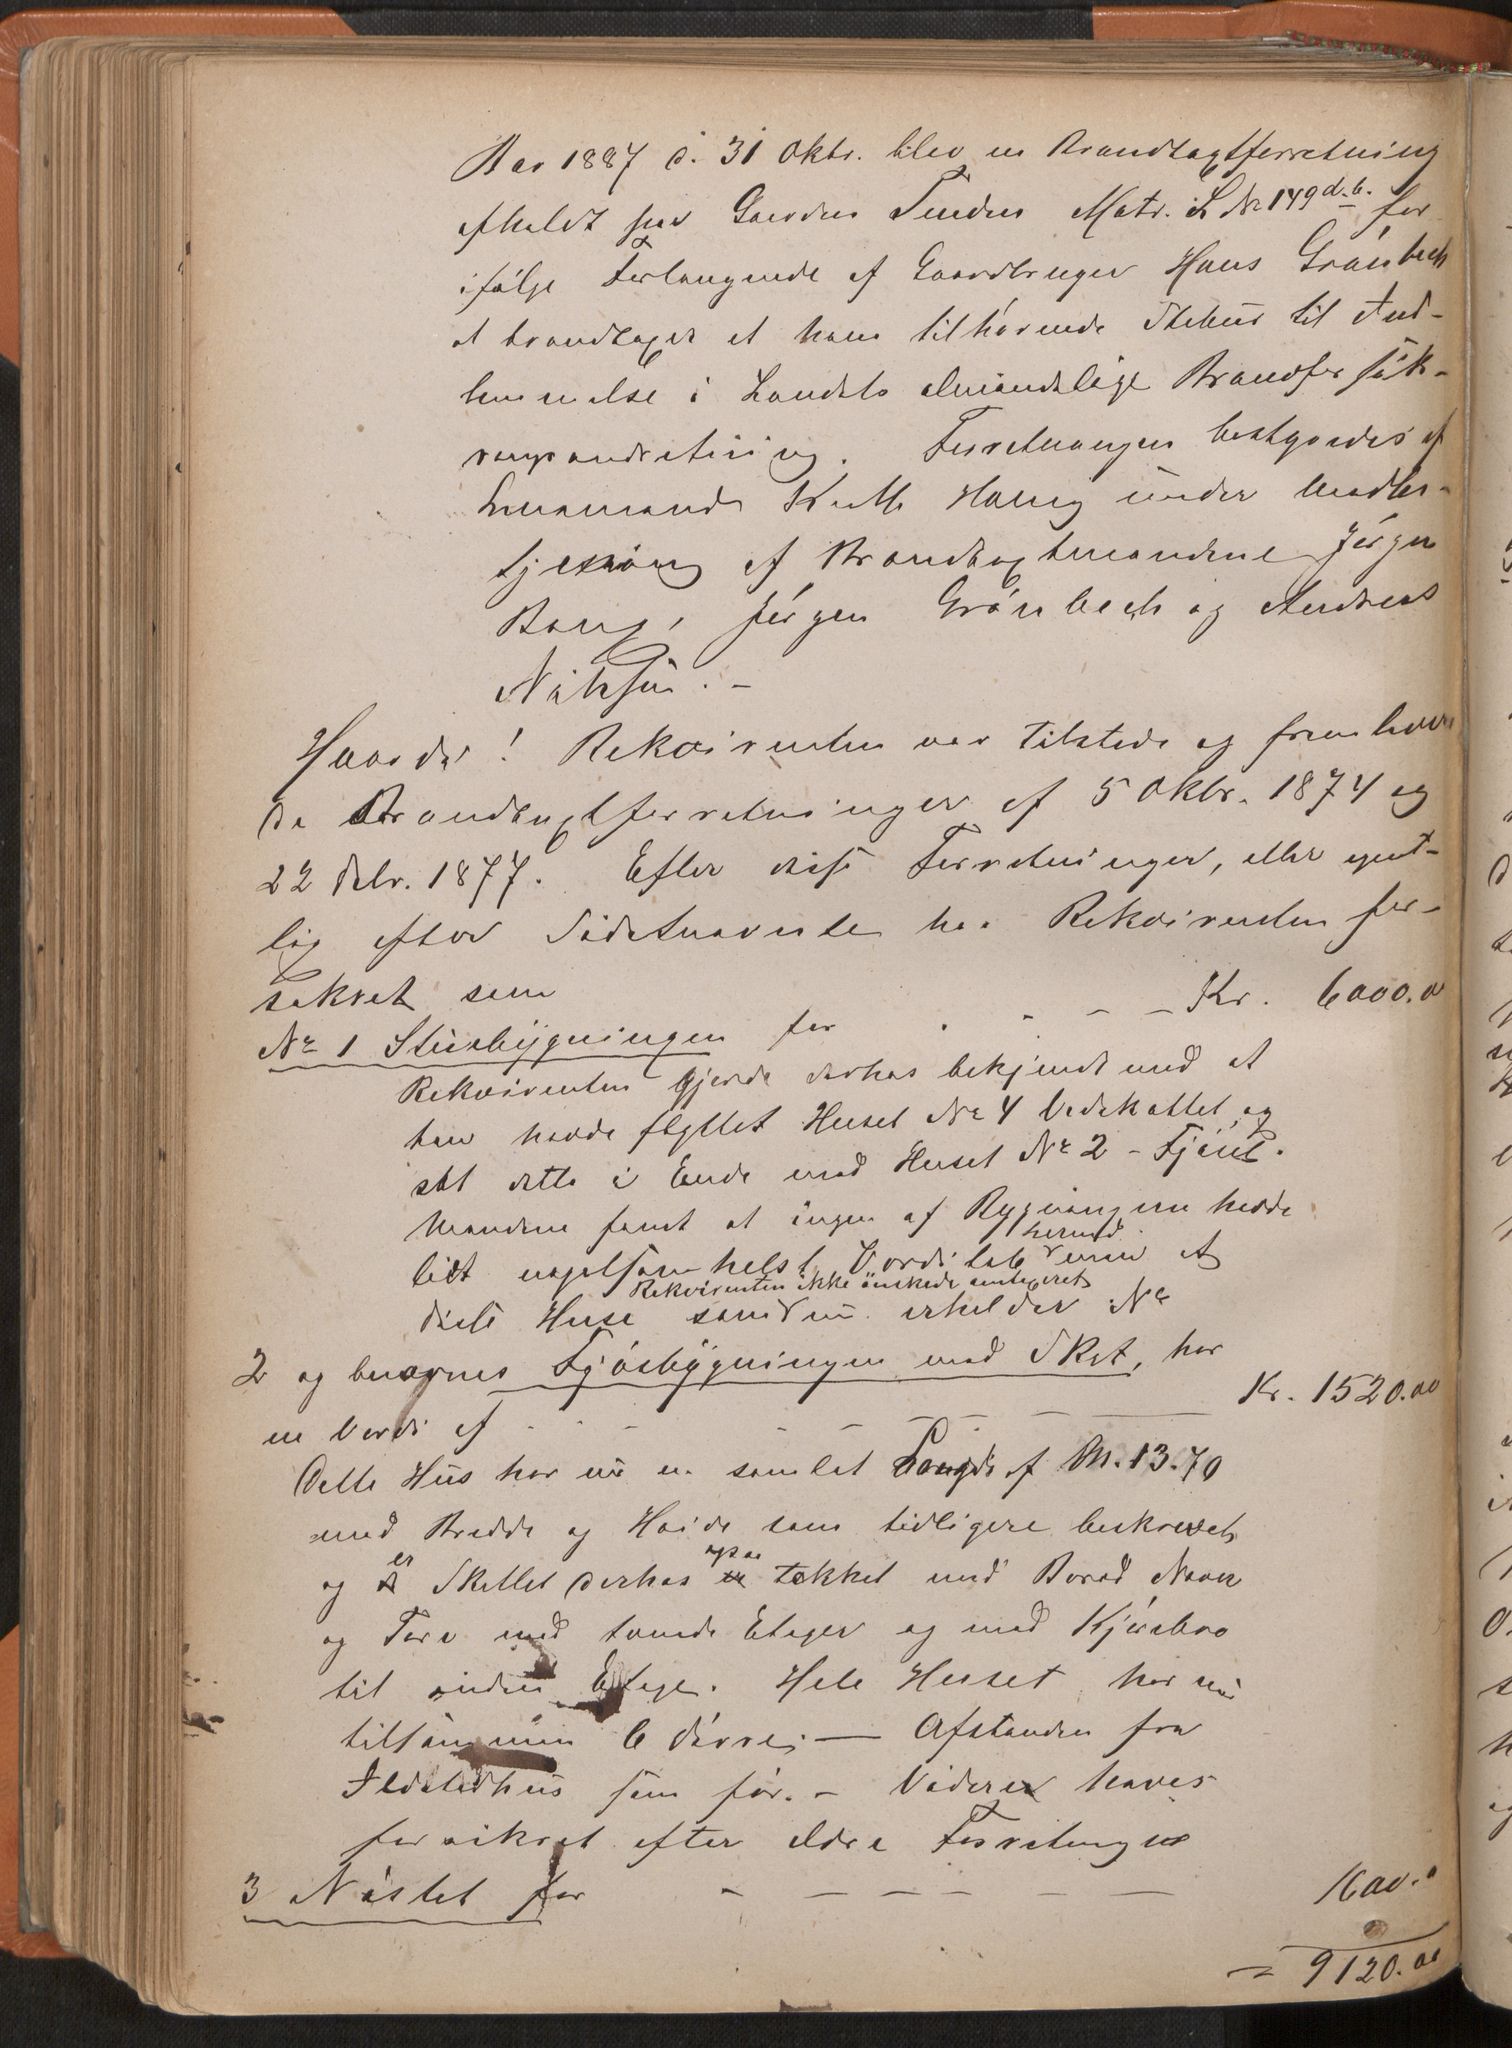 Aar 1887 d. 31 Oktr. blev en Brandtaxtforretning
afholdt paa Gaarden Tinden Matr. L No 149 d.b. for
ifølge Forlangende af Gaardbruger Hans Grönbech
at brandtaxer et ham tilhørende Stebus til Ind-
lemmelse i Landets almindelige Brandforsik-
ringsindretning. Forretningen bestyredes af
Lensmand Knuth Haug under Medbe-
tjening af Brandtaxtmændene Jörgen
Bang, Jörgen Grönbech og Andreas
Nilssen. -
Hvorda! Rekvirenten var tilstede og fremlagde
de Brandtaxtforretninger af 5 Oktbr. 1874 og
22 Debr. 1877. Efter disse Forretninger, eller egent-
lig efter Sidstnævnte har Rekvirenten for-
sikret som
No 1 Stuebygningen for - - - - Kr. 6000.00
Rekvirenten gjorde derhos bekjendt med at
han havde flyttet Huset No 4 Vedskottet og
sat dette i Ende med Huset No 2 - Fjöset.
Mændene fandt at ingen af Bygningerne havde
lidt nogetsomhelst Værditab hermed men at
disse Huse som Rekvirenten ikke önskede omtaxeret nu erholder No
2 og benævnes Fjösbygningen med Skot, har
en Værdi af - - - - - - Kr. 1520.00
Dette Hus har nu en samlet Længde af M. 13.70
med Bredde og Høide som tidligere beskrevet
og er Skottet derhos ogsaa tækket med Bord Næver
og Torv med tvende Etager og med Kjørebro
til anden Etage. Hele Huset har nu
tilsammen 6 Dörre; — Afstanden fra
Ildstedhus som för. - Videre haves
forsikret efter ældre Forretninger
3 Nöstet for - - - - - - 1600.00
= 9120.00